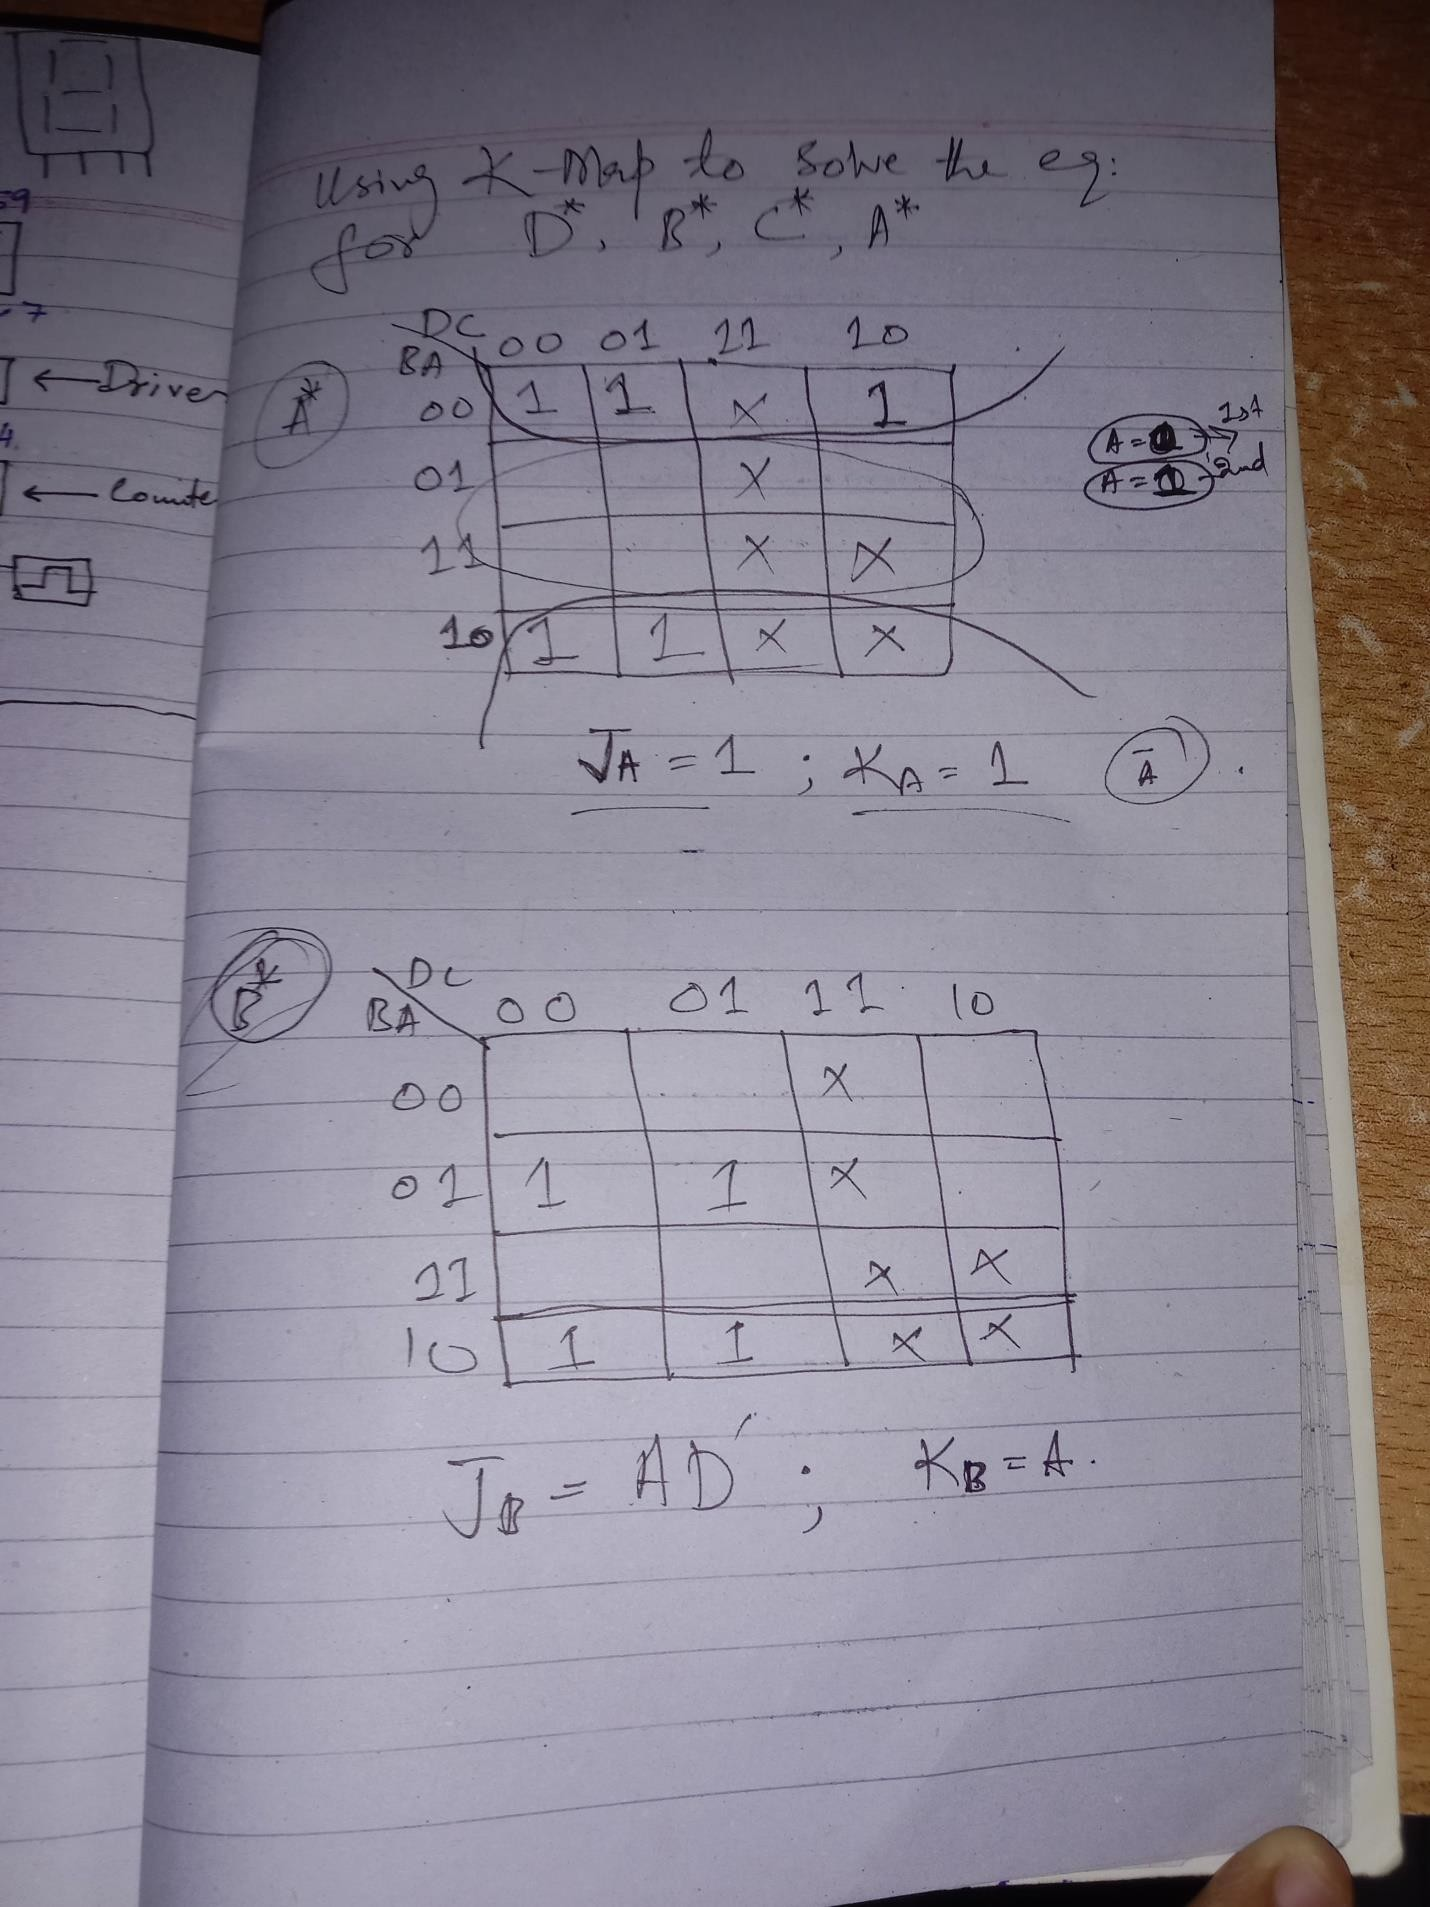 59
.7
← Driver
4.
←
Using K-Map to Solve the eq:
for D*, B*, C*, A*
A*
DC 00 01 11 10
BA
00 1 1 x 1
01 x
11 x x
10 1 1 x x
A = 0 → 1st
A = 1 → 2nd
JA = 1 ; KA = 1 Ā .
B*
DC
BA 00 01 11 10
00 x
01 1 1 x
11 x x
10 1 1 x x
JB = AD' ; KB = A.